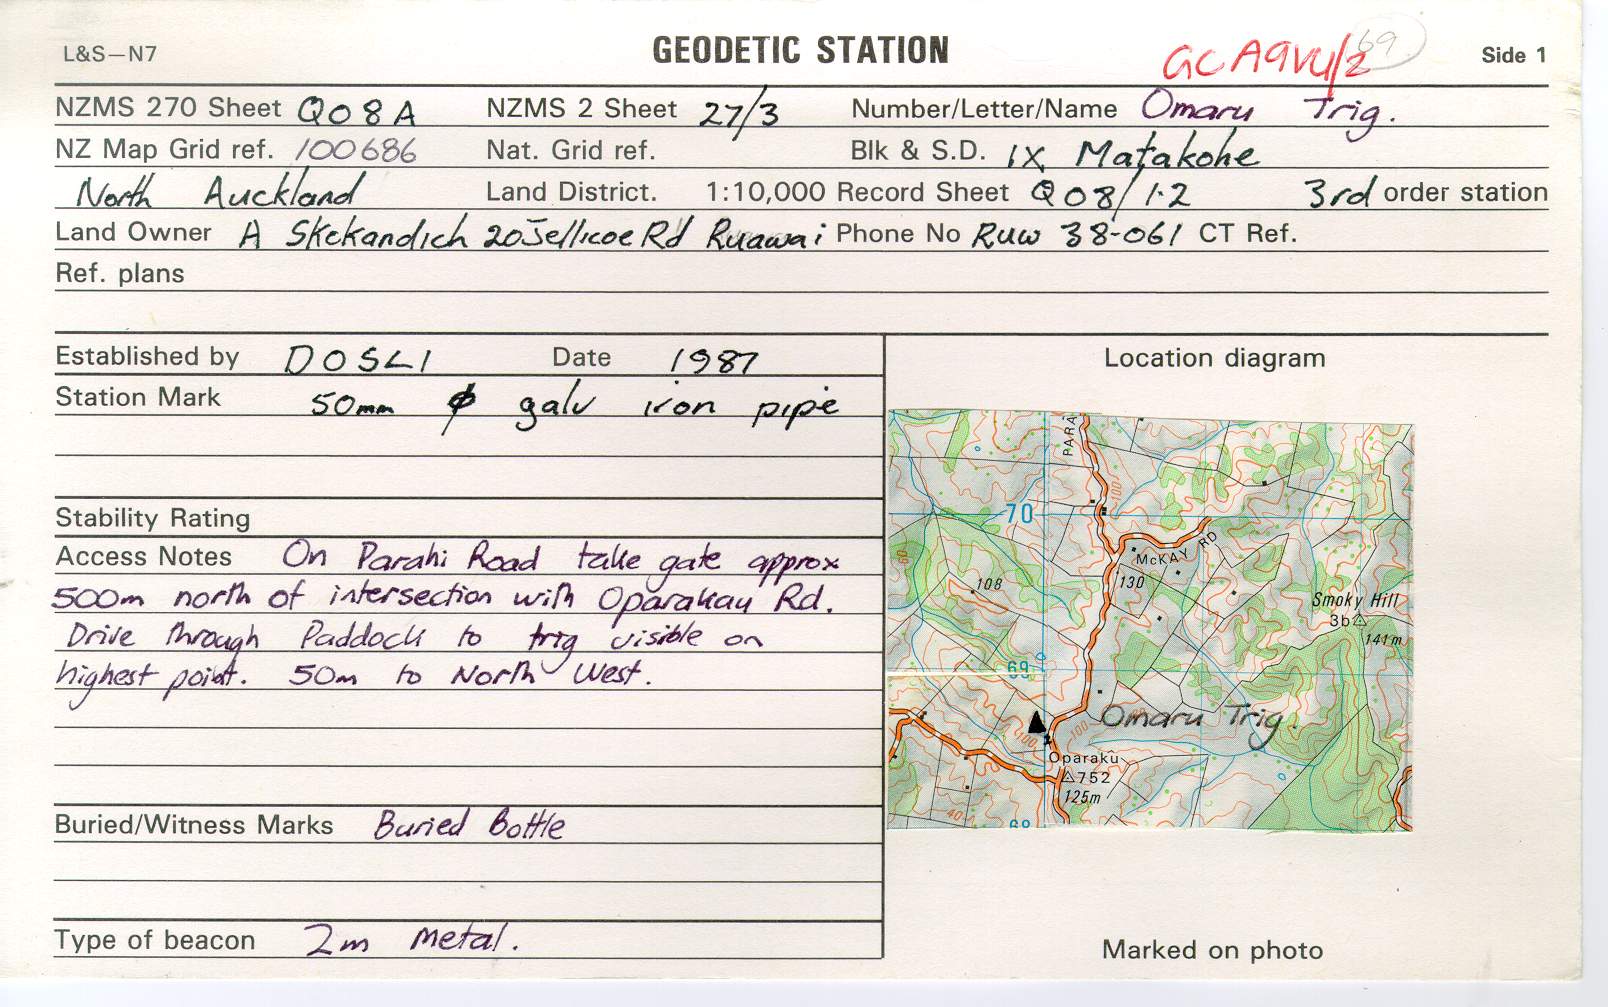 L&S–N7 GEODETIC STATION GCA9VY/2 69 Side 1
NZMS 270 Sheet Q08A NZMS 2 Sheet 27/3 Number/Letter/Name Omaru Trig.
NZ Map Grid ref. 100686 Nat. Grid ref. Blk & S.D. IX Matakohe
North Auckland Land District. 1:10,000 Record Sheet Q08/1·2 3rd order station
Land Owner A Skekandich 20 Jellicoe Rd Ruawai Phone No RUW 38-061 CT Ref.
Ref. plans
Established by DOSLI Date 1987
Station Mark 50mm ϕ galv iron pipe
Stability Rating
Access Notes On Parahi Road take gate approx
500m north of intersection with Oparakau Rd.
Drive through Paddock to trig visible on
highest point. 50m to North West.
Buried/Witness Marks Buried Bottle
Type of beacon 2m metal.
Location diagram
PARA
100
70
McKAY RD
60
108
130
Smoky Hill
3b
141m
69
Omaru Trig.
100
100
Oparakū
752
125m
40
68
Marked on photo